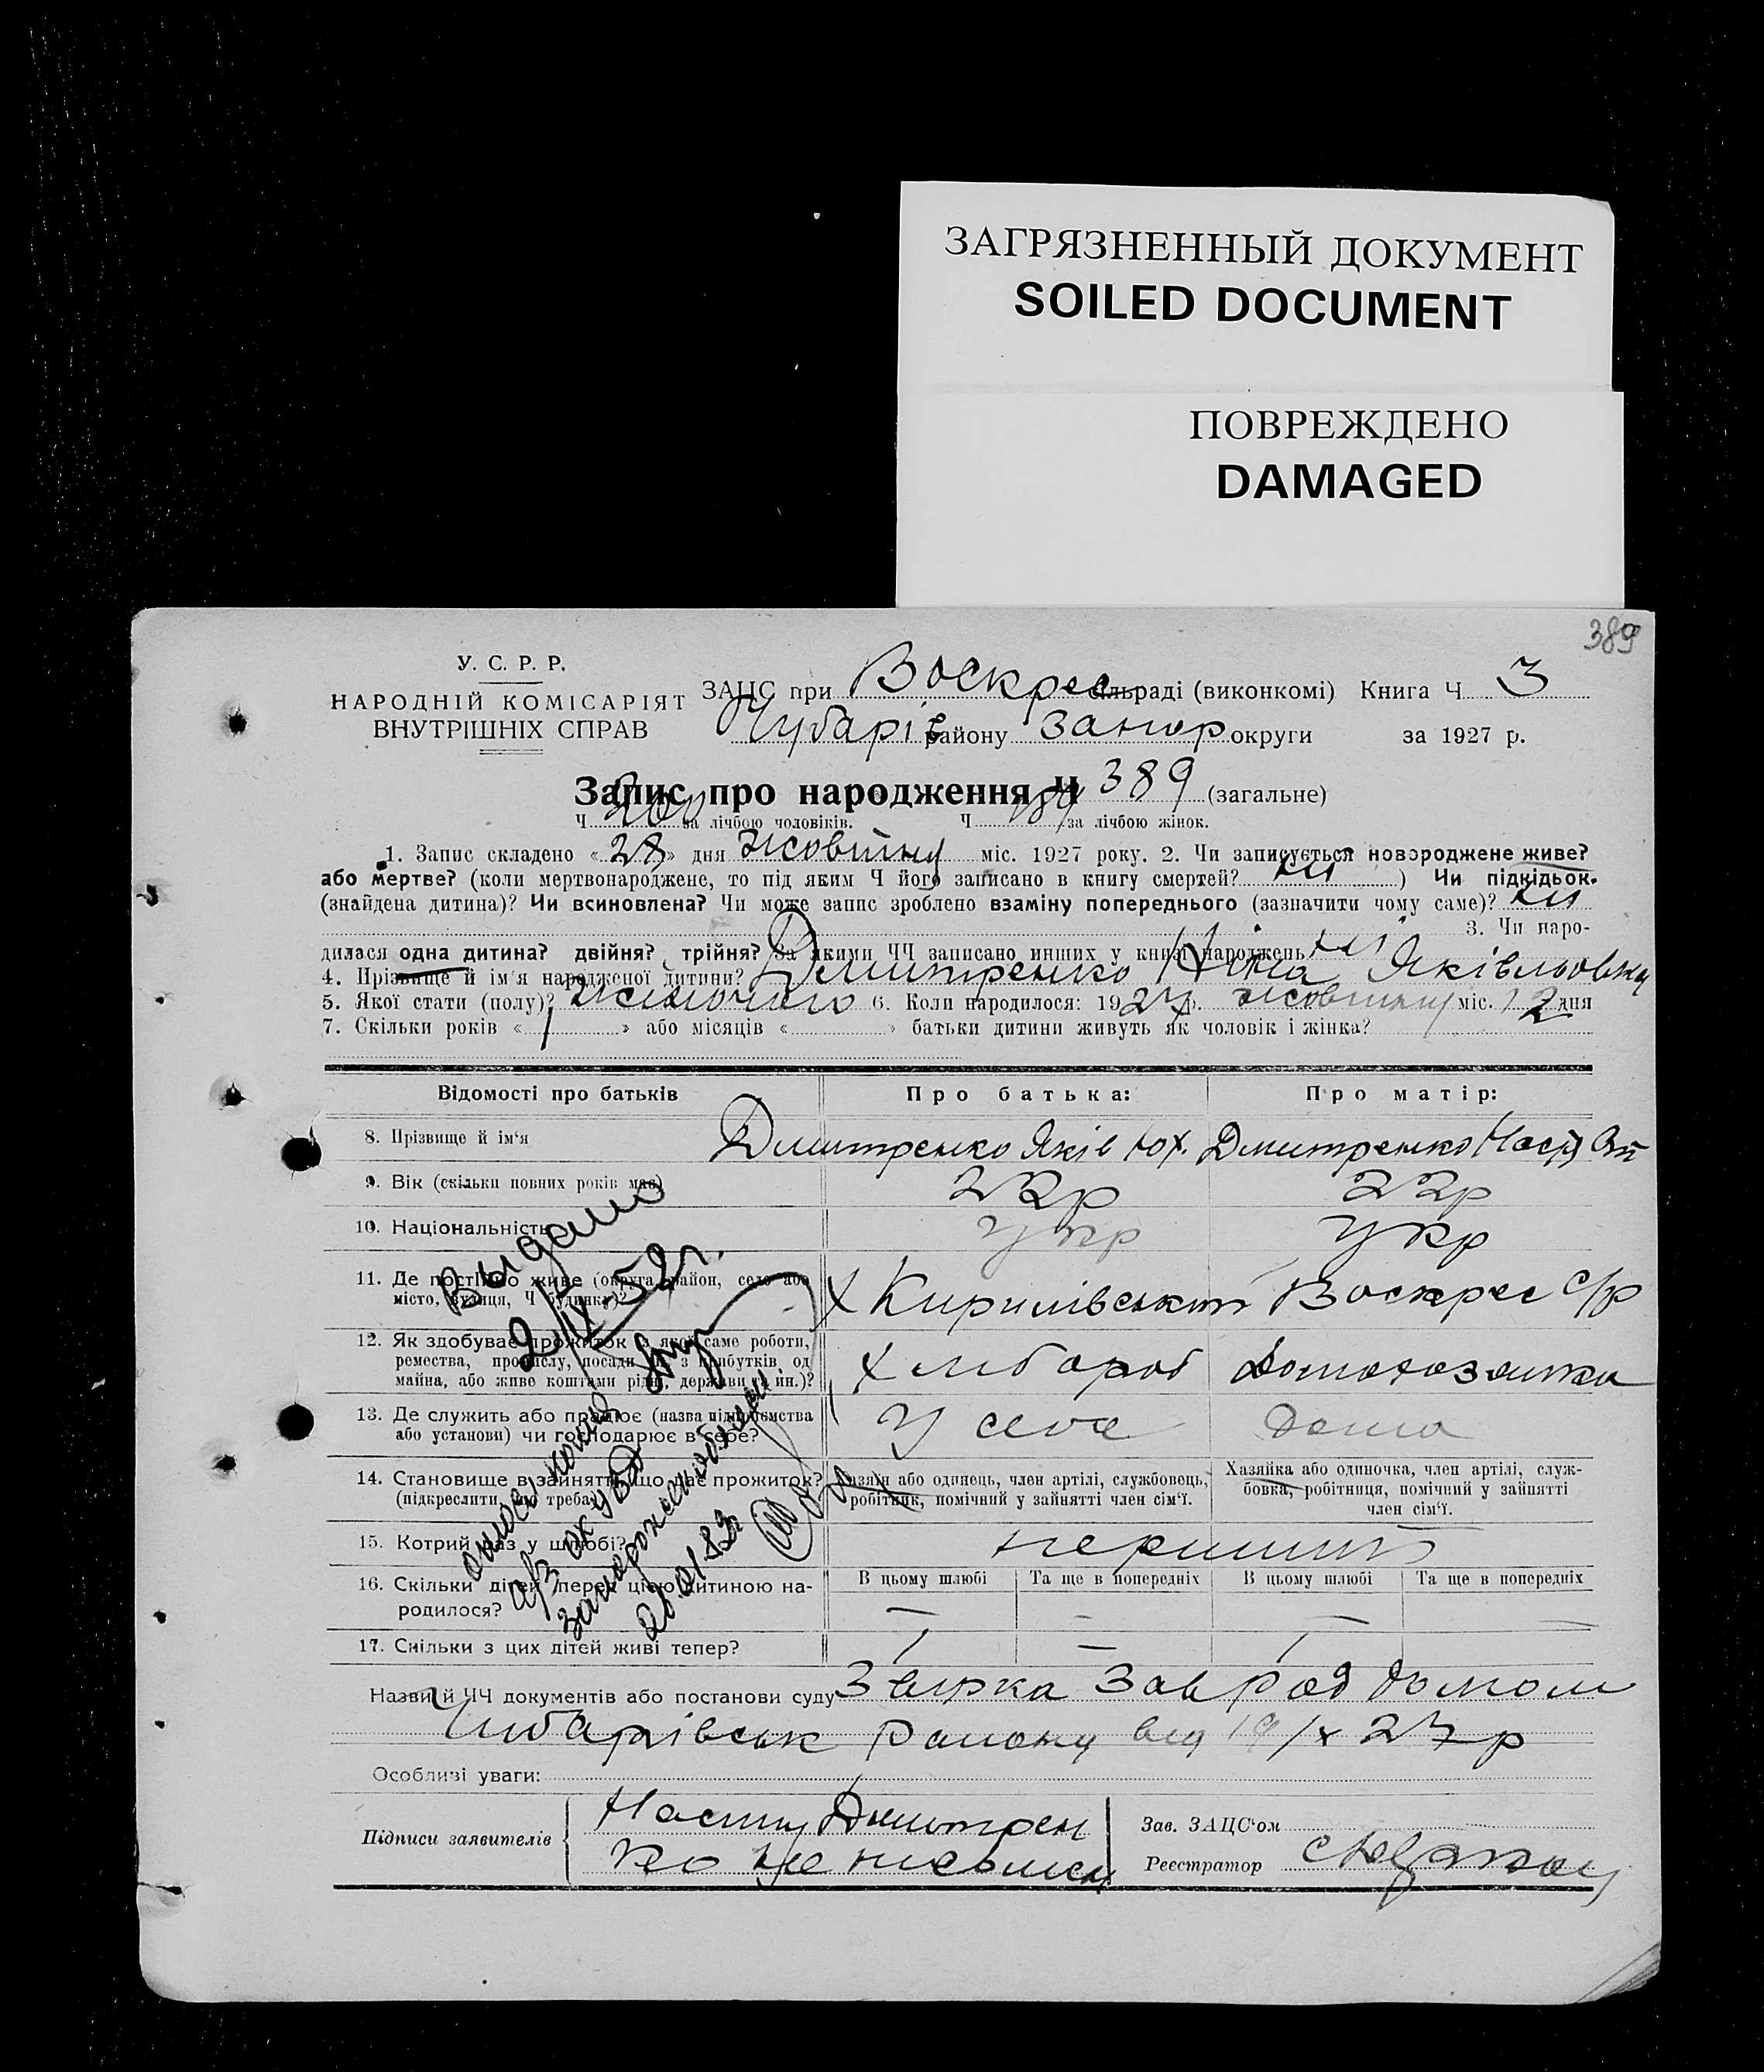 ЗАГРЯЗНЕННЫЙ ДОКУМЕНТ
SOILED DOCUMENT
ПОВРЕЖДЕНО
DAMAGED
389
У. С. Р. Р.
НАРОДНІЙ КОМІСАРІЯТ
ВНУТРІШНІХ СПРАВ
ЗАЦС при Воскрес сільраді (виконкомі) Книга Ч 3
Чубарів району Запор округи за 1927 р.
Запис про народження Ч 389 (загальне)
Ч 200 за лічбою чоловіків. Ч 189 за лічбою жінок.
1. Запис складено «28» дня жовтня міс. 1927 року. 2. Чи записується новороджене живе?
або мертве? (коли мертвонароджене, то під яким Ч його записано в книгу смертей? ні) Чи підкідьок.
(знайдена дитина)? Чи всиновлена? Чи може запис зроблено взаміну попереднього (зазначити чому саме)? ні
3. Чи наро-
дилася одна дитина? двійня? трійня? За якими ЧЧ записано инших у книзі народжень ні
4. Прізвище й ім'я народженої дитини? Дмитренко Ніна Яківльовна
5. Якої стати (полу)? жіночого 6. Коли народилося: 1927 р. жовтня міс. 12 дня
7. Скільки років «1» або місяців « » батьки дитини живуть як чоловік і жінка?
Відомості про батьків Про батька: Про матір:
8. Прізвище й ім'я Дмитренко Яків Юх. Дмитренко Настя
9. Вік (скільки повних років має) 22р 22р
10. Національність укр укр
11. Де постійно живе (округа, район, село або
місто, вулиця, Ч будинка)? Х Кирилівський Воскрес с/р
12. Як здобуває прожиток з якої саме роботи,
ремества, промислу, посади чи з прибутків од
майна, або живе коштами рідні, держави та ин.)? Хлібороб Домохозяйка
13. Де служить або працює (назва підприємства
або установи) чи господарює в себе? У себе Дома
14. Становище в зайнятті, що дає прожиток?
(підкреслити, що треба)
Хазяїн або одинець, член артілі, службовець,
робітник, помічний у зайнятті член сім'ї.
Хазяйка або одиночка, член артілі, служ-
бовка, робітниця, помічний у зайнятті
член сім'ї.
15. Котрий раз у шлюбі? перший
16. Скільки дітей перед цією дитиною на-
родилося?
В цьому шлюбі Та ще в попередніх В цьому шлюбі Та ще в попередніх
— — — —
17. Скільки з цих дітей живі тепер?
Видано
2/IX 52г.
Запорожского
Назви й ЧЧ документів або постанови суду Звирка Зав Род домом
Чубарівськ Району від 19/х 27 р
Особливі уваги:
Підписи заявителів
Настя Дмитрен
ко не письмен
Зав. ЗАЦС'ом
Реєстратор